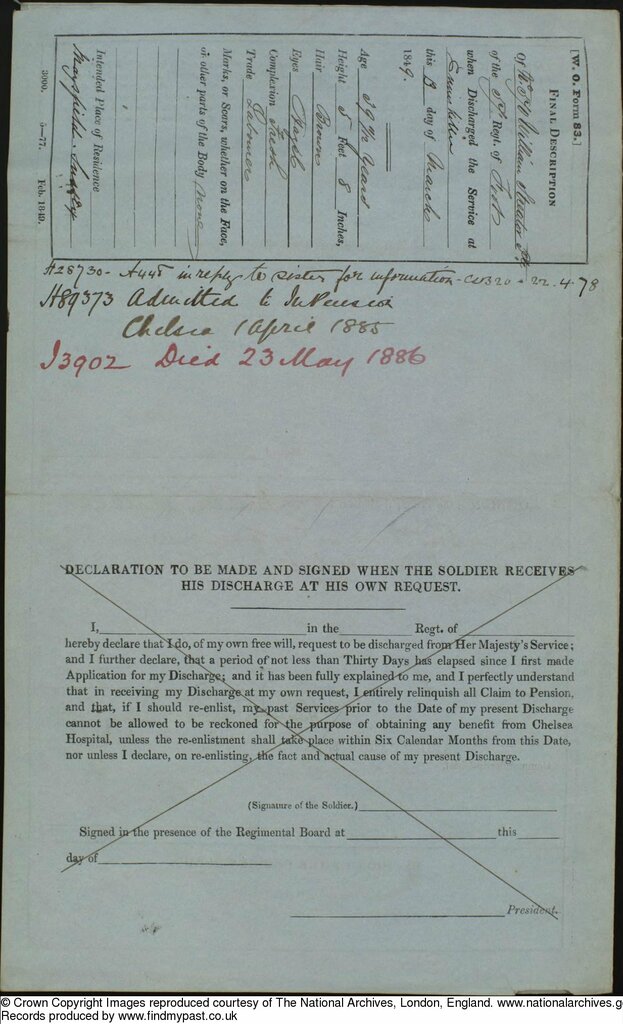 [W. O. Form 83.]
FINAL DESCRIPTION
Of William
of the Regt. of Foot
when Discharged the Service at
this day of March
1849.
Age 39 Years
Height 5 Feet 8 Inches,
Hair Brown
Eyes
Complexion Fresh
Trade Labourer
Marks, or Scars, whether on the Face,
or other parts of the Body None
Intended Place of Residence
Mayfield Sussex
3000. 5—77. Feb. 1849.
A28730 - in reply to sister for information - 22.4.78
A89373 Admitted to InPension
Chelsea 1 April 1885
I3902 Died 23 May 1886
DECLARATION TO BE MADE AND SIGNED WHEN THE SOLDIER RECEIVES
HIS DISCHARGE AT HIS OWN REQUEST.
I, in the Regt. of
hereby declare that I do, of my own free will, request to be discharged from Her Majesty's Service;
and I further declare, that a period of not less than Thirty Days has elapsed since I first made
Application for my Discharge; and it has been fully explained to me, and I perfectly understand
that in receiving my Discharge at my own request, I entirely relinquish all Claim to Pension,
and that, if I should re-enlist, my past Services prior to the Date of my present Discharge
cannot be allowed to be reckoned for the purpose of obtaining any benefit from Chelsea
Hospital, unless the re-enlistment shall take place within Six Calendar Months from this Date,
nor unless I declare, on re-enlisting, the fact and actual cause of my present Discharge.
(Signature of the Soldier.)
Signed in the presence of the Regimental Board at this
day of
President.
© Crown Copyright Images reproduced courtesy of The National Archives, London, England. www.nationalarchives.g
Records produced by www.findmypast.co.uk